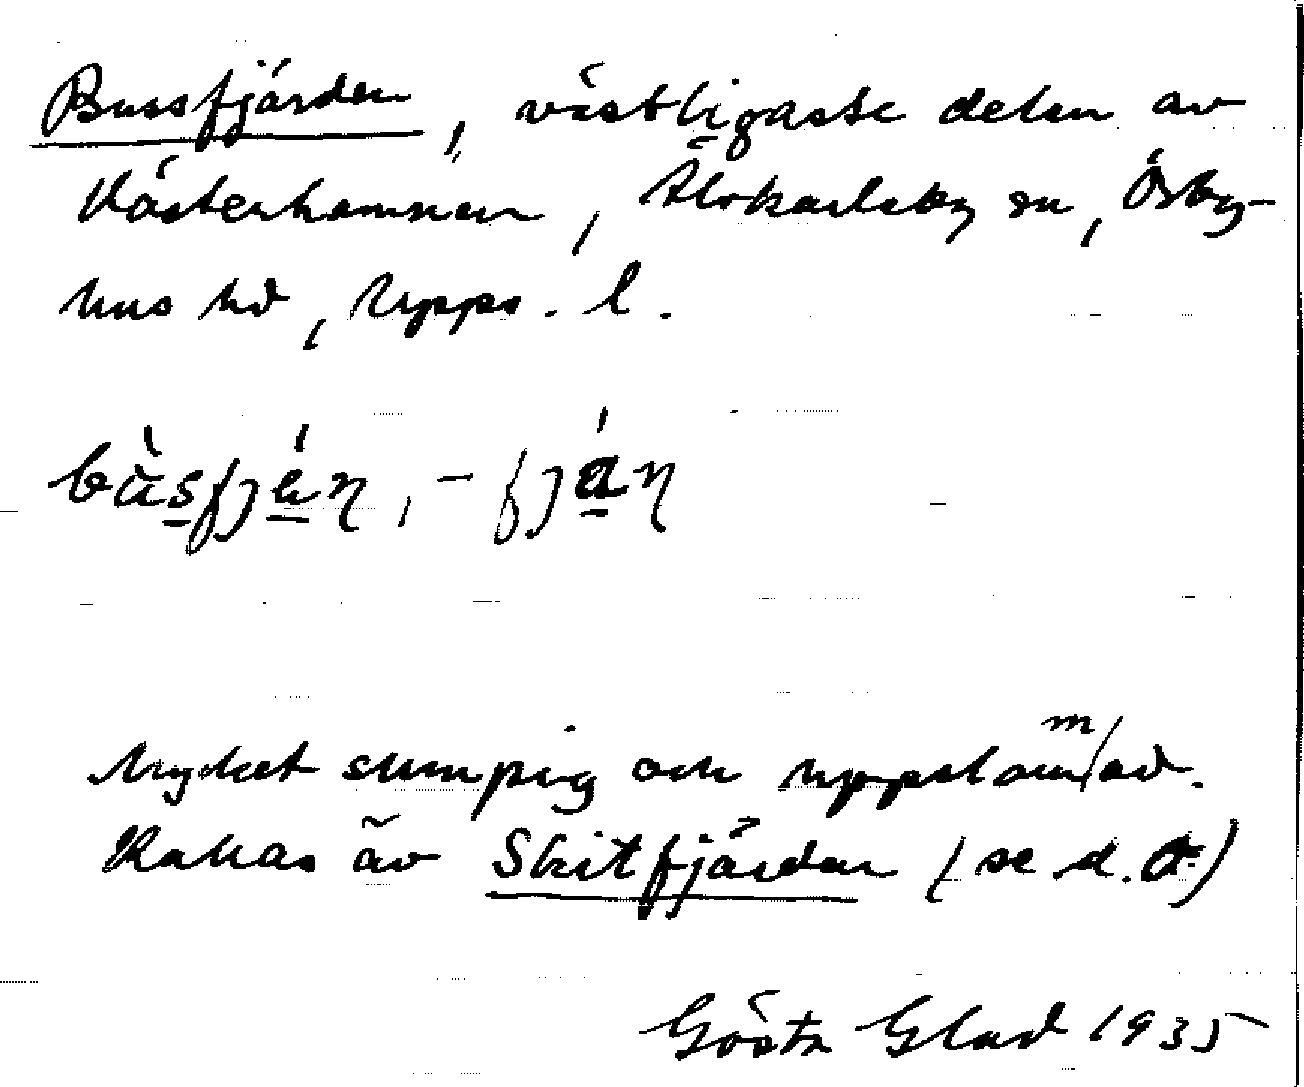 Bussfjärden, västligaste delen av
Västerhamnen, Älvkarleby sn, Örby-
hus hd, Upps. l.
Mycket sumpig och uppslammad.
Kallas äv Skitfjärden (se d.o.)
Gösta Glad 1935